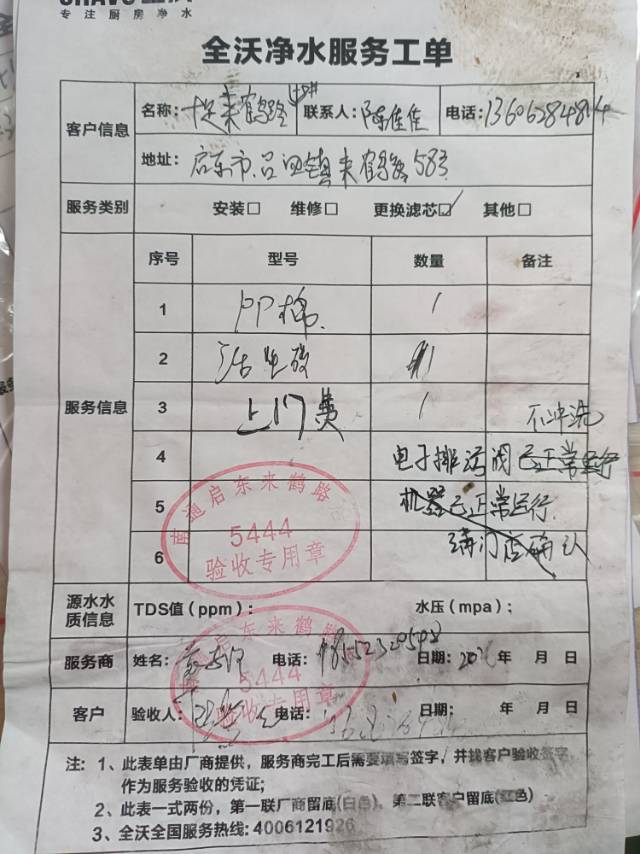 专注厨房净水
全沃净水服务工单
客户信息
名称: 来鹤路 联系人: 陈佳佳 电话: 13606284814
地址: 启东市吕四镇来鹤路583
服务类别 安装□ 维修□ 更换滤芯☑ 其他□
服务信息
序号 型号 数量 备注
1 PP棉 1
2 活性炭 1
3 上门费 1 不冲洗
4 电子排污阀已正常运行
5 机器已正常运行
6 请门店确认
南通启东来鹤路
5444
验收专用章
源水水质信息 TDS值(ppm): 水压(mpa):
服务商 姓名: 电话: 日期: 年 月 日
启东来鹤路
5444
验收专用章
客户 验收人: 电话: 日期: 年 月 日
注: 1、此表单由厂商提供,服务商完工后需要填写签字,并找客户验收签字,
作为服务验收的凭证;
2、此表一式两份,第一联厂商留底(白色)、第二联客户留底(红色)
3、全沃全国服务热线: 4006121926